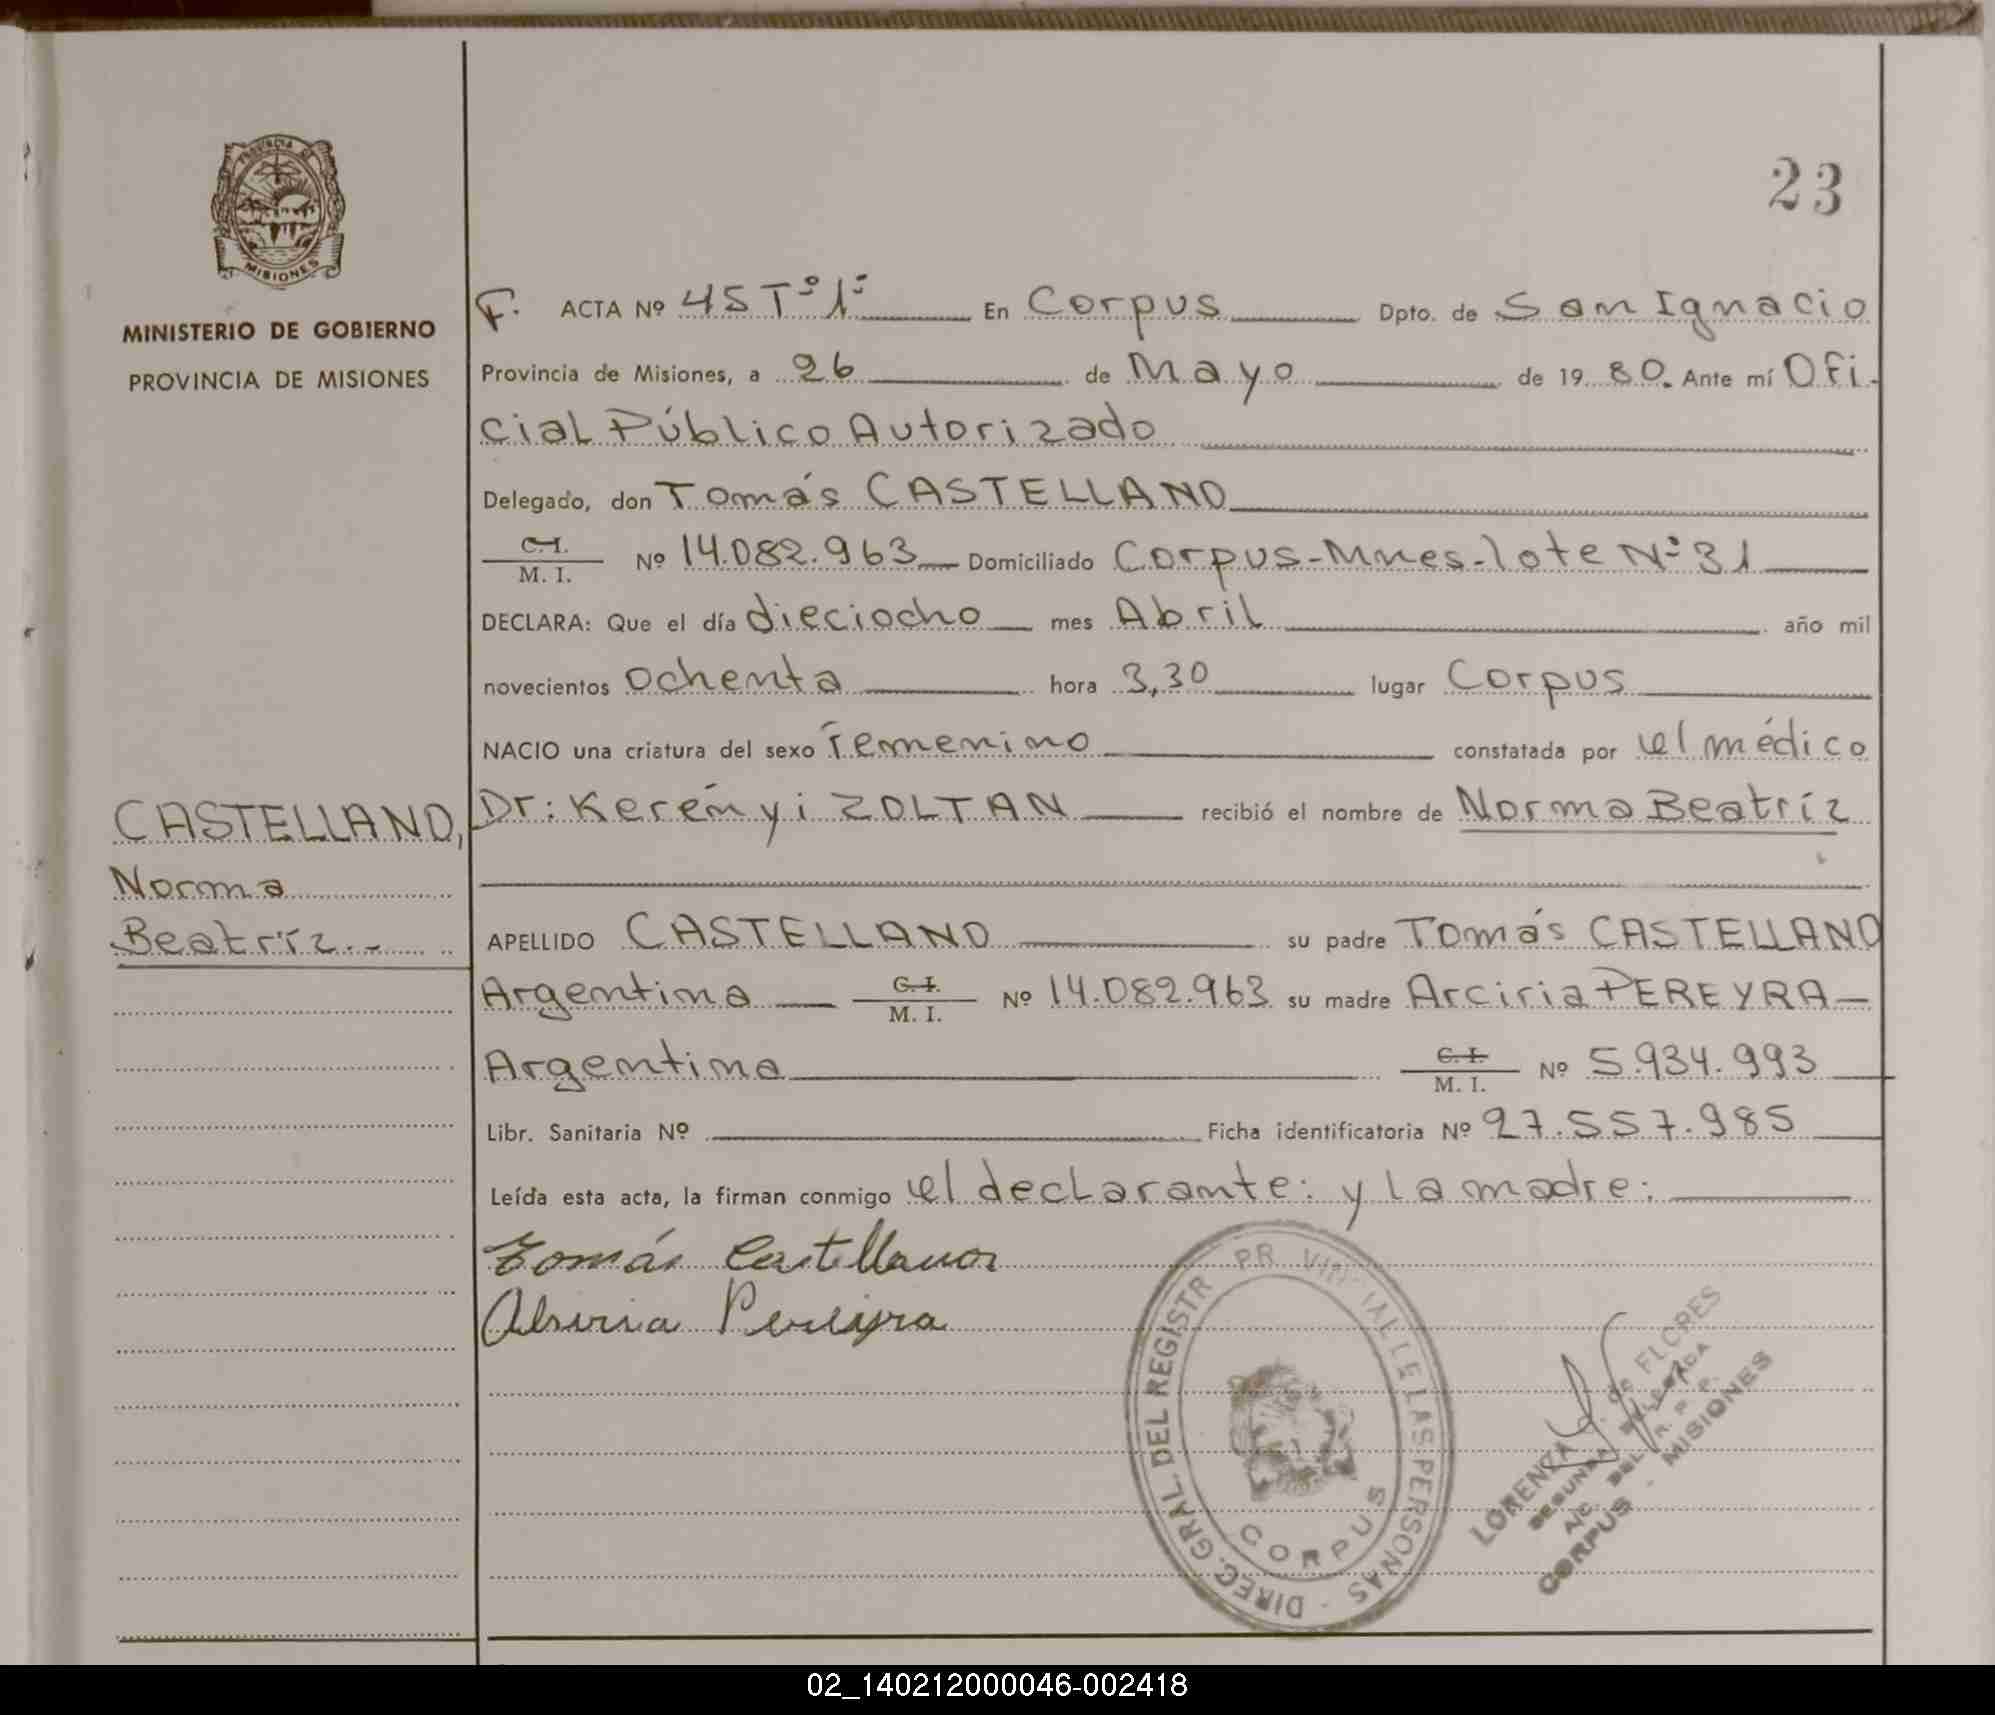 23
PROVINCIA DE
MISIONES
MINISTERIO DE GOBIERNO
PROVINCIA DE MISIONES
F. ACTA Nº 45 Tº 1º En Corpus Dpto. de San Ignacio
Provincia de Misiones, a 26 de Mayo de 19 80. Ante mí Ofi-
cial Público Autorizado
Delegado, don Tomás CASTELLANO
C. I. / M. I. Nº 14.082.963 Domiciliado Corpus-Mnes-lote Nº 31
DECLARA: Que el día dieciocho mes Abril año mil
novecientos ochenta hora 3,30 lugar Corpus
NACIO una criatura del sexo femenino constatada por el médico
Dr: Kerényi ZOLTAN recibió el nombre de Norma Beatríz
CASTELLANO,
Norma
Beatríz.-
APELLIDO CASTELLANO su padre Tomás CASTELLANO
Argentina C. I. / M. I. Nº 14.082.963 su madre Arciria PEREYRA
Argentina C. I. / M. I. Nº 5.934.993
Libr. Sanitaria Nº Ficha identificatoria Nº 27.557.985
Leída esta acta, la firman conmigo el declarante: y la madre:
Tomás Castellanos
Pereyra
DIREC. GRAL. DEL REGISTR PR VIN IAL E LAS PERSONAS -
CORPUS
LORENZA de FLORES
SEGUNDA
A/C DEL R. P. P.
CORPUS - MISIONES
02_140212000046-002418